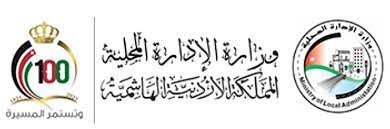 وزارة الإدارة المحلية
المملكة الأردنية الهاشمية
وزارة الإدارة المحلية
Ministry of Local Administration
100
1921
2021
وتستمر المسيرة